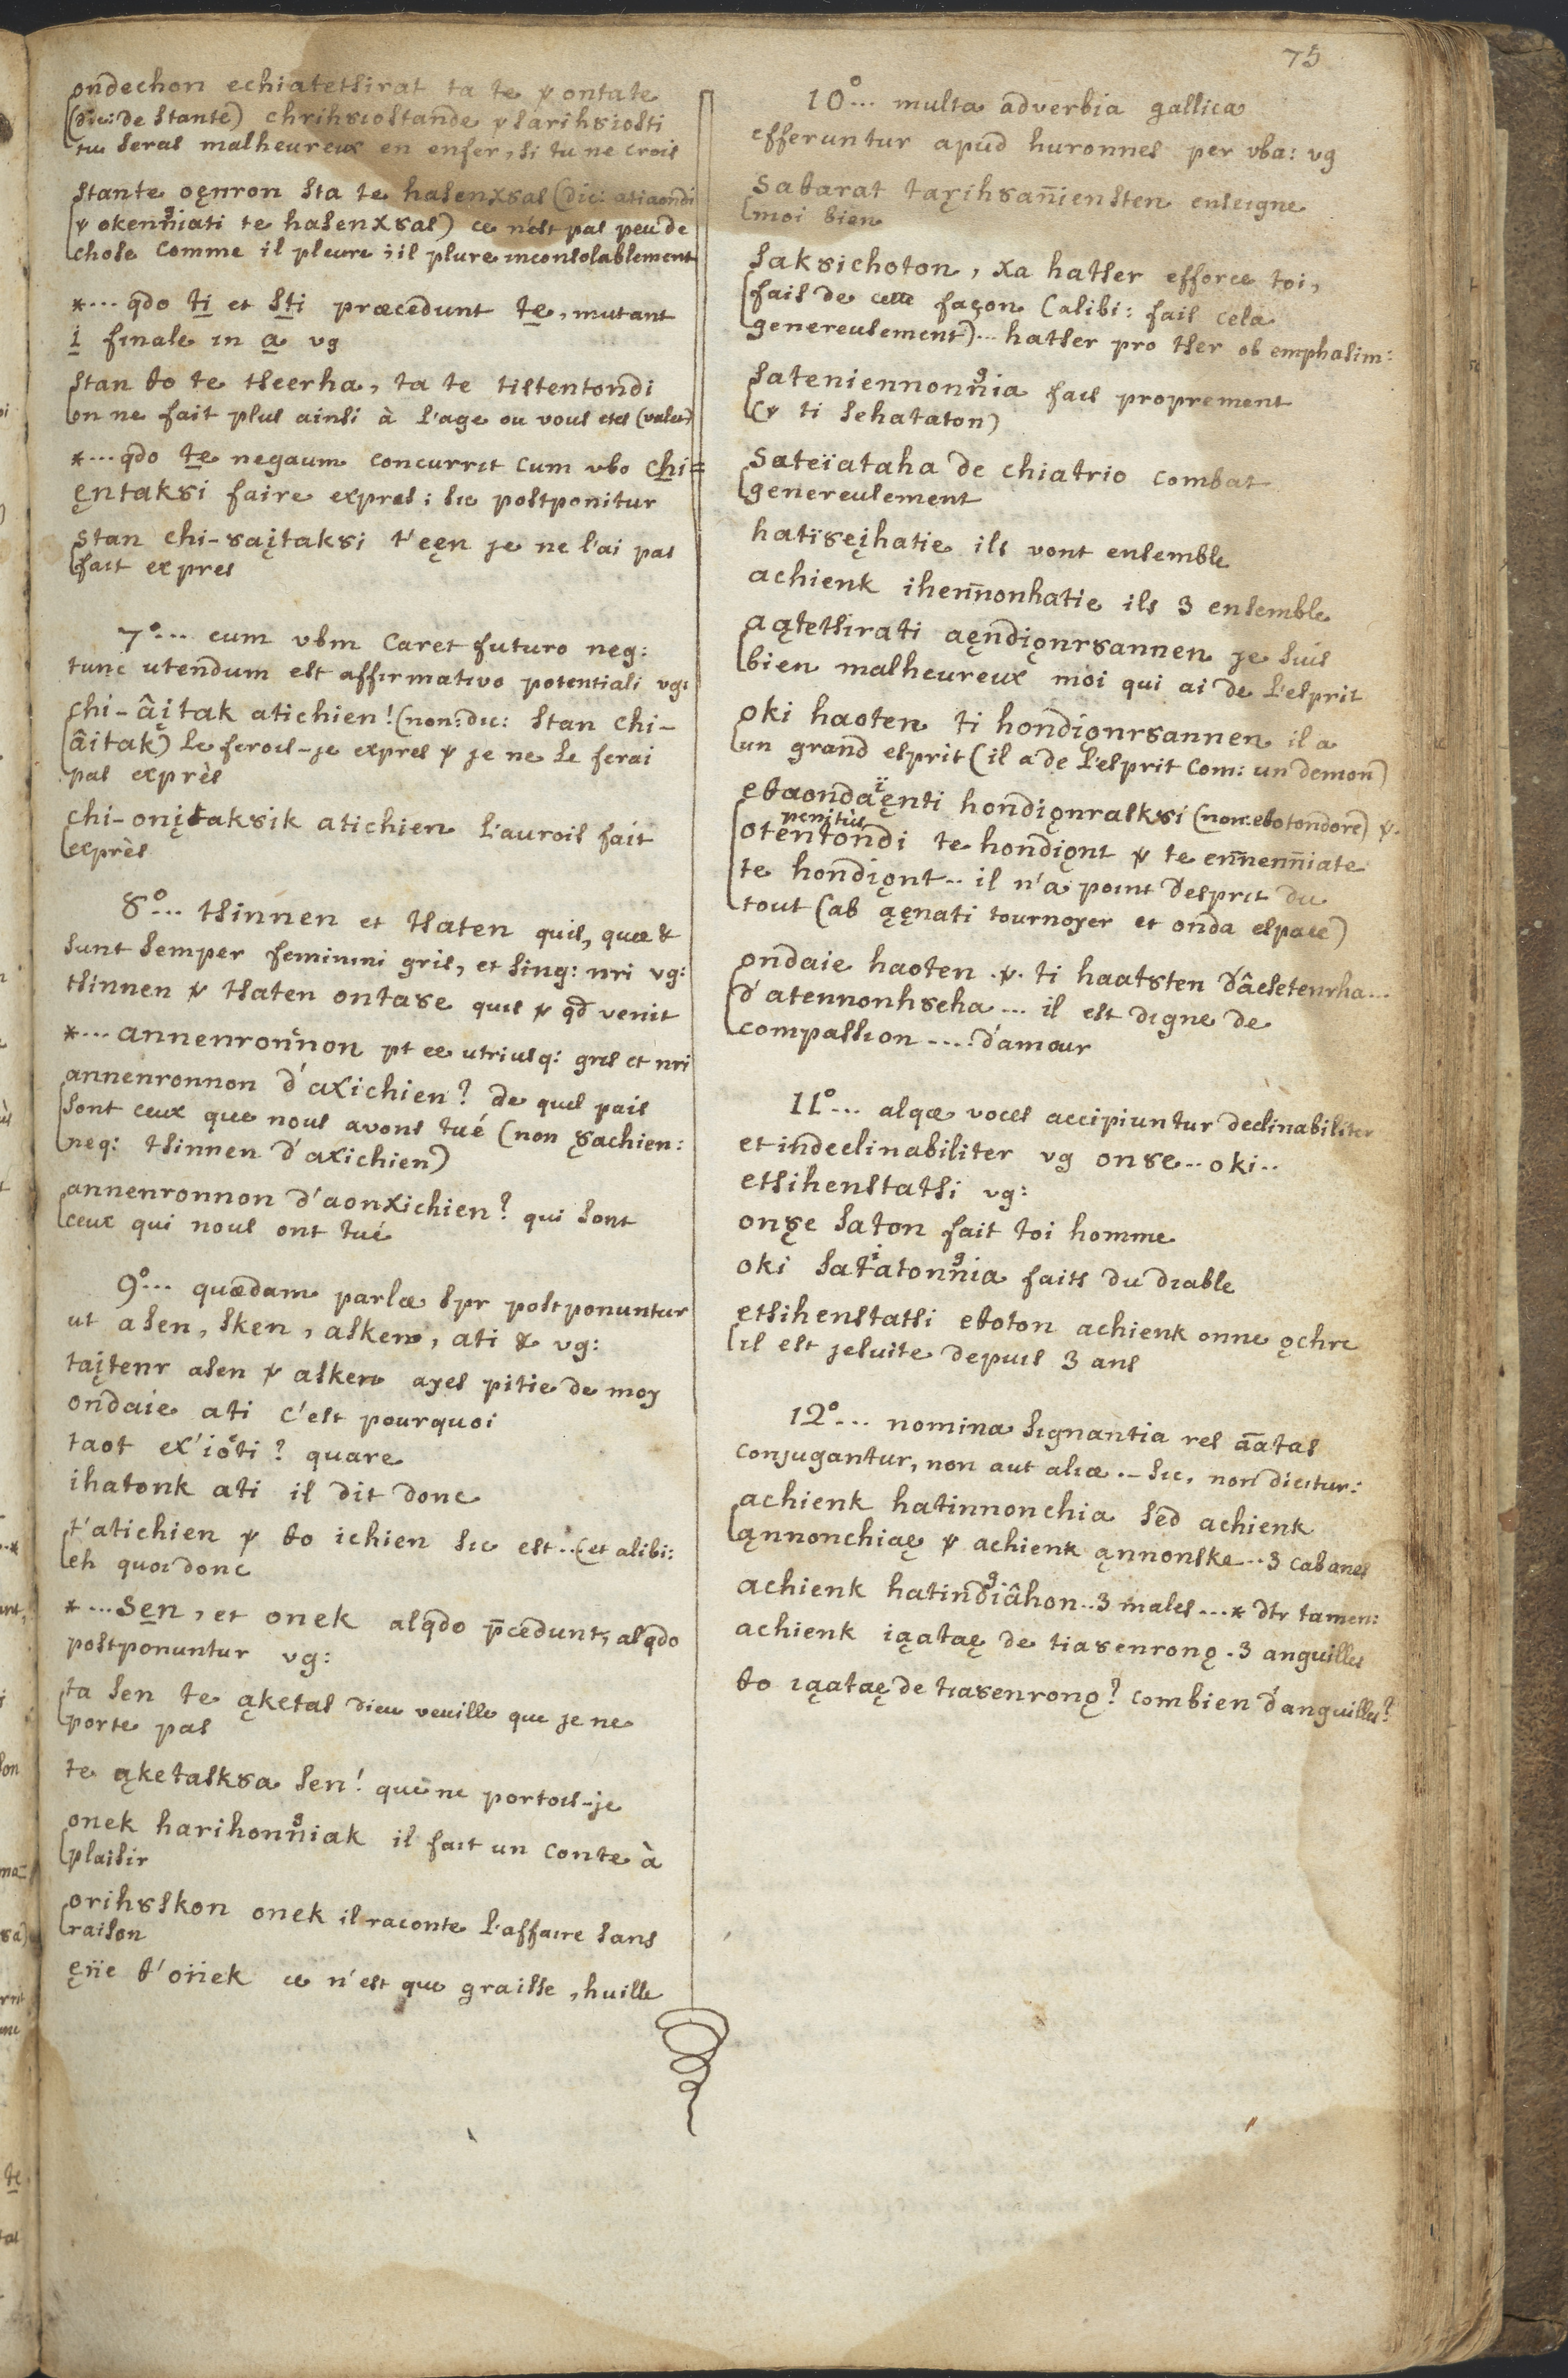 75
ondechon echiatetsirat ta te ѱ ontate
(dic: de stante) chrihȣiostande ѱ sarihȣiosti
tu seras malheureux en enfer, si tu ne crois
stante oęnron sta te hasenxȣas (dic: atiaondi
ѱ okenn͛iati te hasenxȣas) ce n'est pas peu de
chose comme il pleure ; il plure inconsolablement
*.... qdo ti et sti præcedunt te, mutant
i finale in a vg
stan θo te tseerha, ta te tistentondi
on ne fait plus ainsi à l'age ou vous etes (vale)
*.... qdo te negaum concurrit cum vbo chi=
ęntakȣi faire expres ; sic postponitur
stan chi-ȣaįtakȣi t'eęn je ne l'ai pas
fait expres
7°... cum vbm caret futuro neg:
tunc utendum est affirmativo potentiali vg:
chi-âįtak atichien! (non: dic: stan chi-
âitak) le ferois-je expres ѱ je ne le ferai
pas exprès
chi-onįtakȣik atichien l'aurois fait
exprès
8°... tsinnen et tsaten quis, quæ &
sunt semper feminini gris, et sing: nri vg:
tsinnen ѱ tsaten ontaȣe quis ѱ qd venit
*... annenronnon pt ee utriusq: gris et nri
annenronnon d'axichien? de quel pais
sont ceux que nous avons tué (non ȣachien:
neq: tsinnen d'axichien)
annenronnon d'aonxichien? qui sont
ceux qui nous ont tué
9°... quædam parlæ spr postponuntur
ut asen, sken, asken, ati & vg:
taįtenr asen ѱ asken ayes pitie de moy
ondaie ati c'est pourquoi
taot ex'ioti? quare
ihatonk ati il dit donc
t'atichien ѱ θo ichien sic est .. (et alibi:
eh quoi donc
*... sen, et onek alqdo p̄cedunt, alqdo
postponuntur vg:
ta sen te ąketas Dieu veuille que je ne
porte pas
te ąketaskȣa sen! que ne portois-je
onek harihonn͛iak il fait un conte à
plaisir
orihȣskon onek il raconte l'affaire sans
raison
ęn̈e θ'on̈ek ce n'est que graisse, huille
10°... multa adverbia gallica
efferuntur apud huronnes per vba: vg
saθarat taįihȣan̄iensten enseigne
moi bien
sakȣichoton, xa hatser efforce toi,
fais de cette façon (alibi: fais cela
genereusement)... hatser pro tser ob emphasim:
sateniennonn͛ia fais proprement
(ѱ ti sehataton)
sateïataha de chiatrio combat
genereusement
hatiȣeįhatie ils vont ensemble
achienk ihen̄nonhatie ils 3 ensemble
aątetsirati aęndiǫnrȣannen je suis
bien malheureux moi qui ai de l'esprit
oki haoten ti hondionrȣannen il a
un grand esprit (il a de l'esprit com: un demon)
eθaondaęnti hondiǫnraskȣi (non: eθotondore) ѱ.
penitùs
otentondi te hondiǫnt ѱ te en̄nen̄niate
te hondiǫnt.. il n'a point d'esprit du
tout (ab ąęnati tournoyer et onda espace)
ondaie haoten .ѱ. ti haatȣten d'âesetenrha...
d'atennonhȣeha ... il est digne de
compassion ..... d'amour
11°... alqæ voces accipiuntur declinabiliter
et indeclinabiliter vg onȣe .. oki ..
etsihenstatsi vg:
onȣe saton fait toi homme
oki satiatonn͛ia faits du diable
etsihenstatsi eθoton achienk onne ǫchre
il est jesuite depuis 3 ans
12°... nomina signantia res āatas
conjugantur, non aut aliæ .- sic, non dicitur:
achienk hatinnonchia sed achienk
ąnnonchiaę ѱ achienk ąnnonske .. 3 cabanes
achienk hatind͛iâhon .. 3 males ... * dtr tamen:
achienk iąataę de tiaȣenronǫ . 3 anguilles
θo iąataę de tiaȣenronǫ? combien d'anguilles?